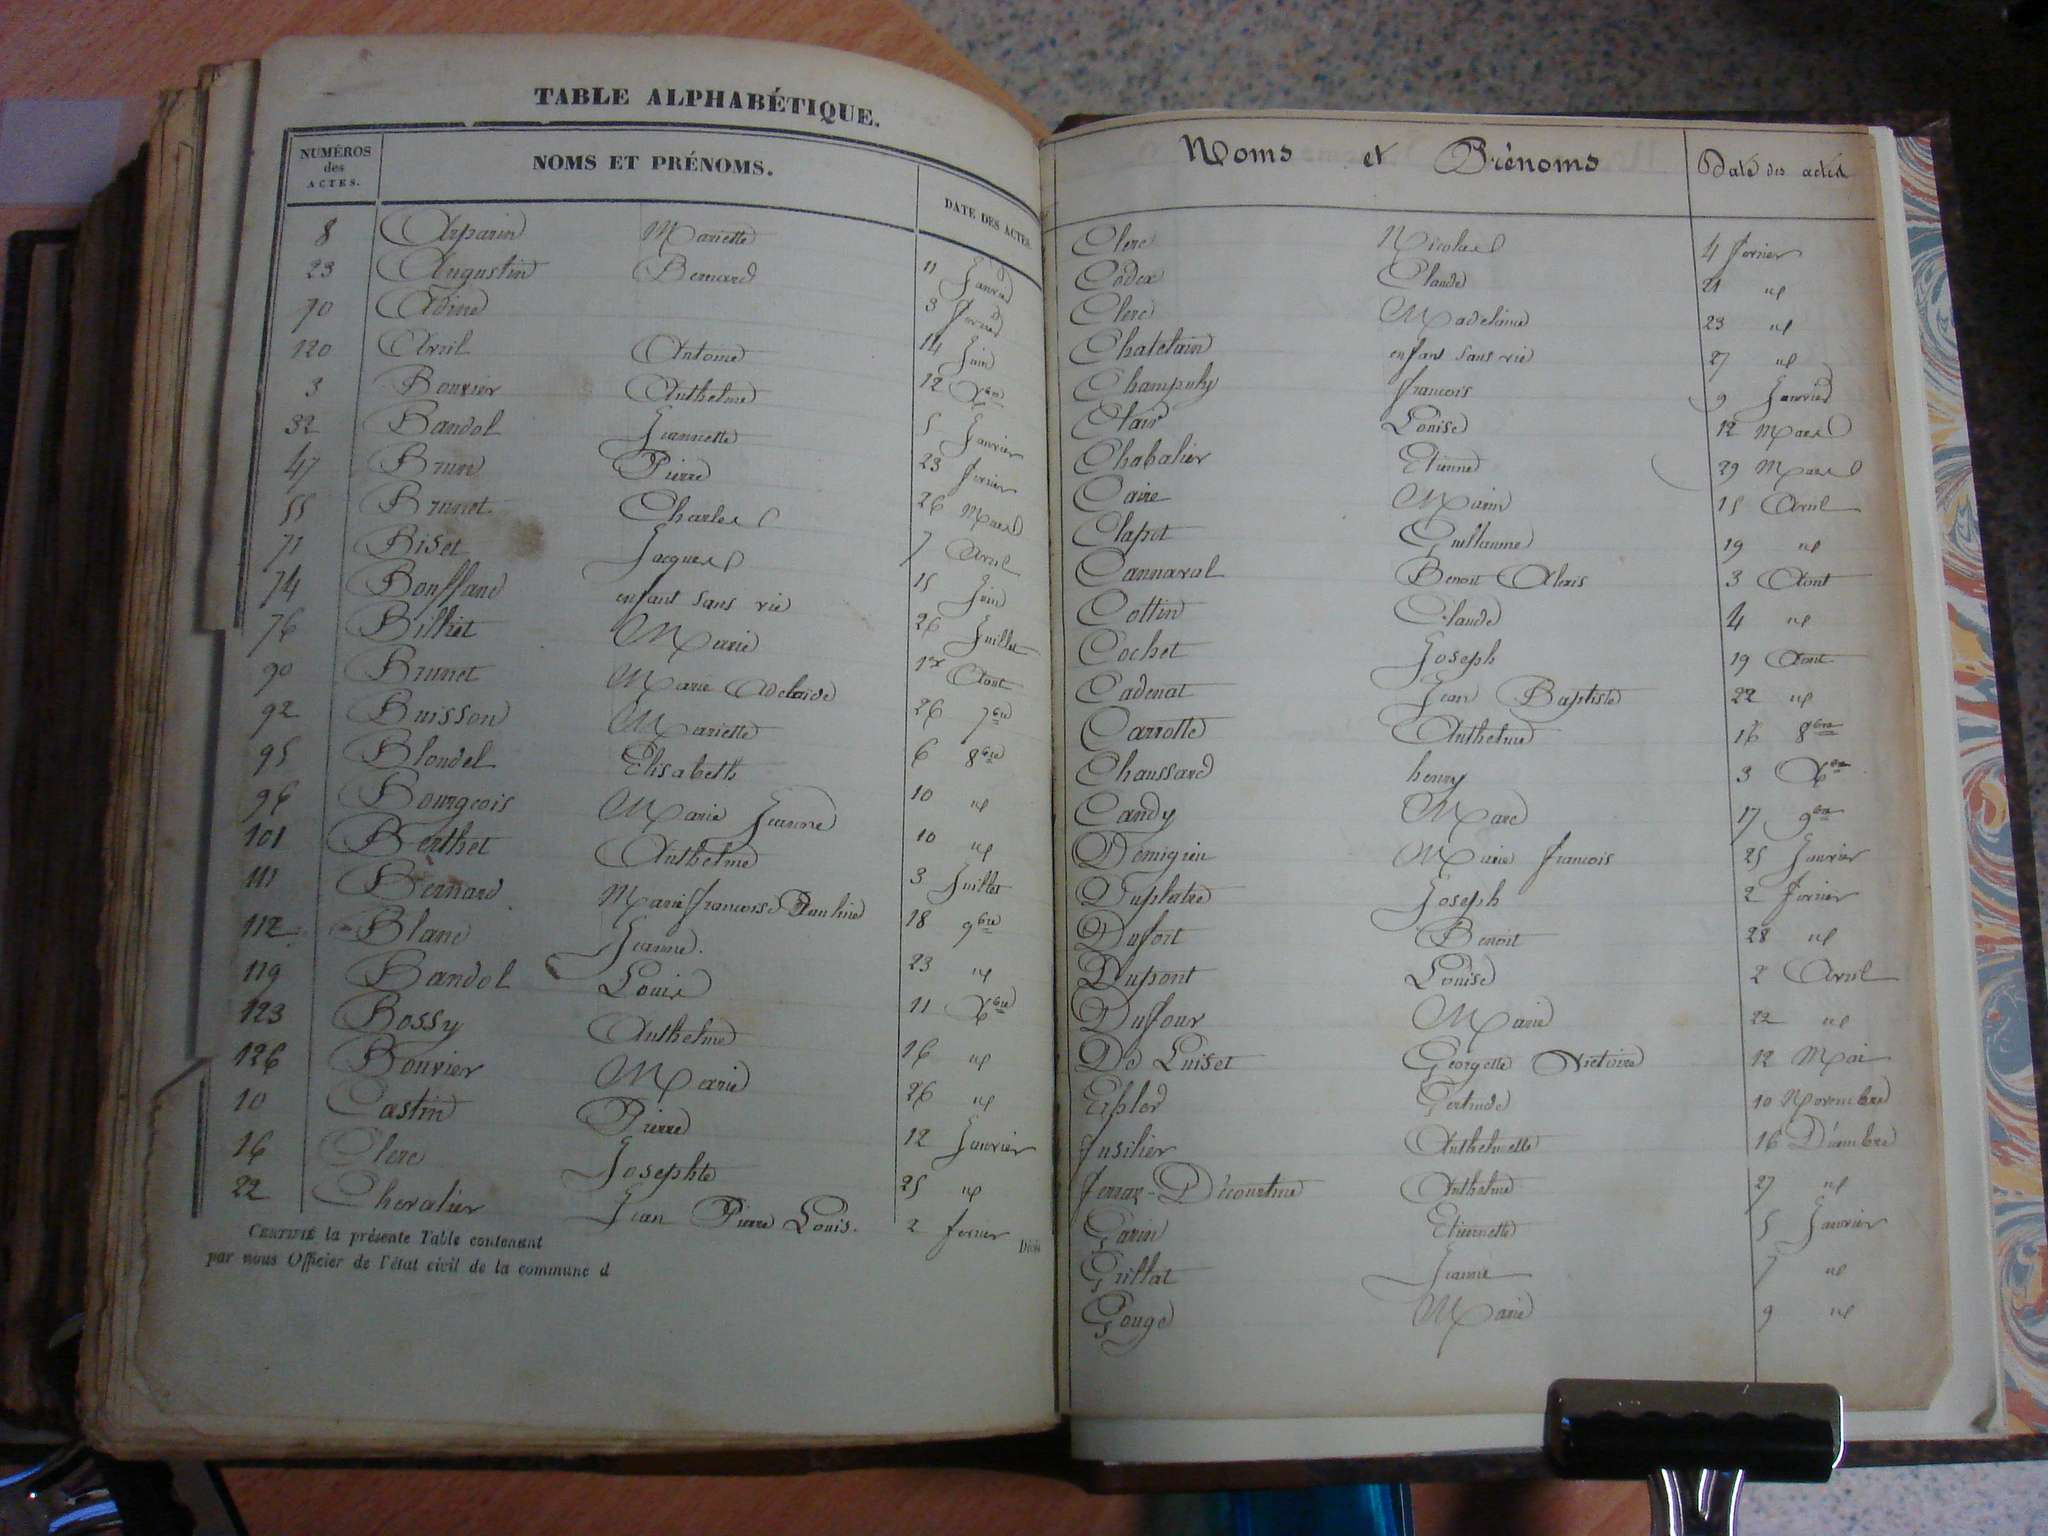 TABLE ALPHABÉTIQUE.
NUMÉROS des ACTES. NOMS ET PRÉNOMS. DATE DES ACTES.
8 Arparin Mariette 11 Janvier
23 Augustin Bernard 3 fevrier
70 Adine 14 Juin
120 Avril Antoine 12 Xbre
3 Bouvier Anthelme 5 Janvier
32 Bandol Jeannette 23 fevrier
47 Brun Pierre 26 Mars
55 Brunet Charles 7 Avril
71 Biset Jacques 15 Juin
74 Bouffand enfant sans vie 26 Juillet
76 Billiet Marie 1er Aout
90 Brunet Marie Adelaide 26 7bre
92 Buisson Mariette 6 8bre
95 Blondel Elisabeth 10 id
96 Bourgeois Marie Jeanne 10 id
101 Berthet Anthelme 3 Juillet
111 Bernard Marie françoise Pauline 18 9bre
112 Blanc Jeanne. 23 id
119 Bandol Louis 11 Xbre
123 Bossy Anthelme 16 id
126 Bouvier Marie 26 id
10 Castin Pierre 12 Janvier
16 Clerc Josephte 25 id
22 Chevalier Jean Pierre Louis. 2 fevrier
CERTIFIÉ la présente Table contenant Décès
par nous Officier de l'état civil de la commune d
Noms et Prénoms Date des actes
Clerc Nicolas 4 fevrier
Codex Claude 21 id
Clerc Madelaine 23 id
Chatelain enfant sans vie 27 id
Champuly francois 9 Janvier
Clair Louise 12 Mars
Chabalier Etienne 29 Mars
Caire Marin 15 Avril
Clapet Guillaume 19 id
Cannaval Benoit Alexis 3 Aout
Cottin Claude 4 id
Cochet Joseph 19 Aout
Cadenat Jean Baptiste 22 id
Carrotte Anthelme 16 8bre
Chaussard henry 3 Xbre
Candy Marc 17 9bre
Démigieu Marie francois 25 Janvier
Duplatre Joseph 2 fevrier
Dufort Benoit 28 id
Dupont Louise 2 Avril
Dufour Marie 22 id
De Luiset Georgette Victoire 12 Mai
Epler Gertrude 10 Novembre
fusilier Anthelmette 16 Décembre
ferraz-Décourtine Anthelme 27 id
Garin Etiennette 5 Janvier
Grillat Jeanne 7 id
Gouge Marie 9 id